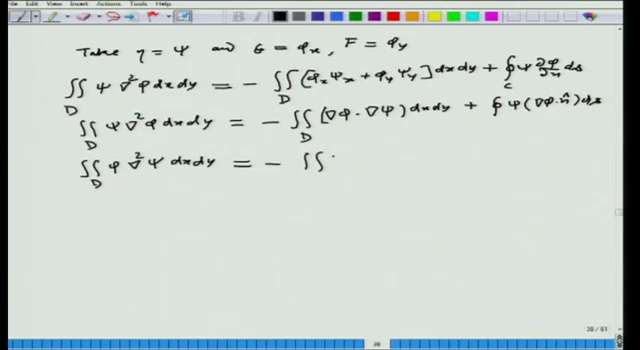 File Edit View Insert Actions Tools Help
Take η = Ψ and G = φₓ, F = φ_y
∬_D Ψ ∇²φ dxdy = - ∬_D [φₓΨₓ + φ_yΨ_y] dxdy + ∮_C Ψ ∂φ/∂n ds
∬_D Ψ ∇²φ dxdy = - ∬_D (∇φ · ∇Ψ) dxdy + ∮ Ψ (∇φ·n̂) ds
∬_D φ ∇²Ψ dxdy = - ∬
38 / 61
38